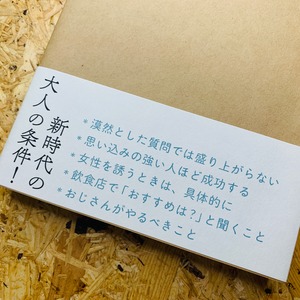 新時代の
大人の条件！
*漠然とした質問では盛り上がらない
*思い込みの強い人ほど成功する
*女性を誘うときは、具体的に
*飲食店で「おすすめは？」と聞くこと
*おじさんがやるべきこと